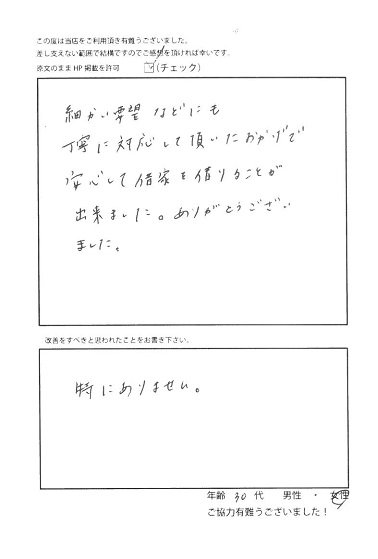 この度は当店をご利用頂き有難うございました。
差し支えない範囲で結構ですのでご感想を頂ければ幸いです。
原文のまま HP 掲載を許可 ☑(チェック)
細かい要望などにも
丁寧に対応して頂いたおかげで
安心して借家を借りることが
出来ました。ありがとうござい
ました。
改善をすべきと思われたことをお書き下さい。
特にありません。
年齢 30 代 男性 ・ 女性
ご協力有難うございました！